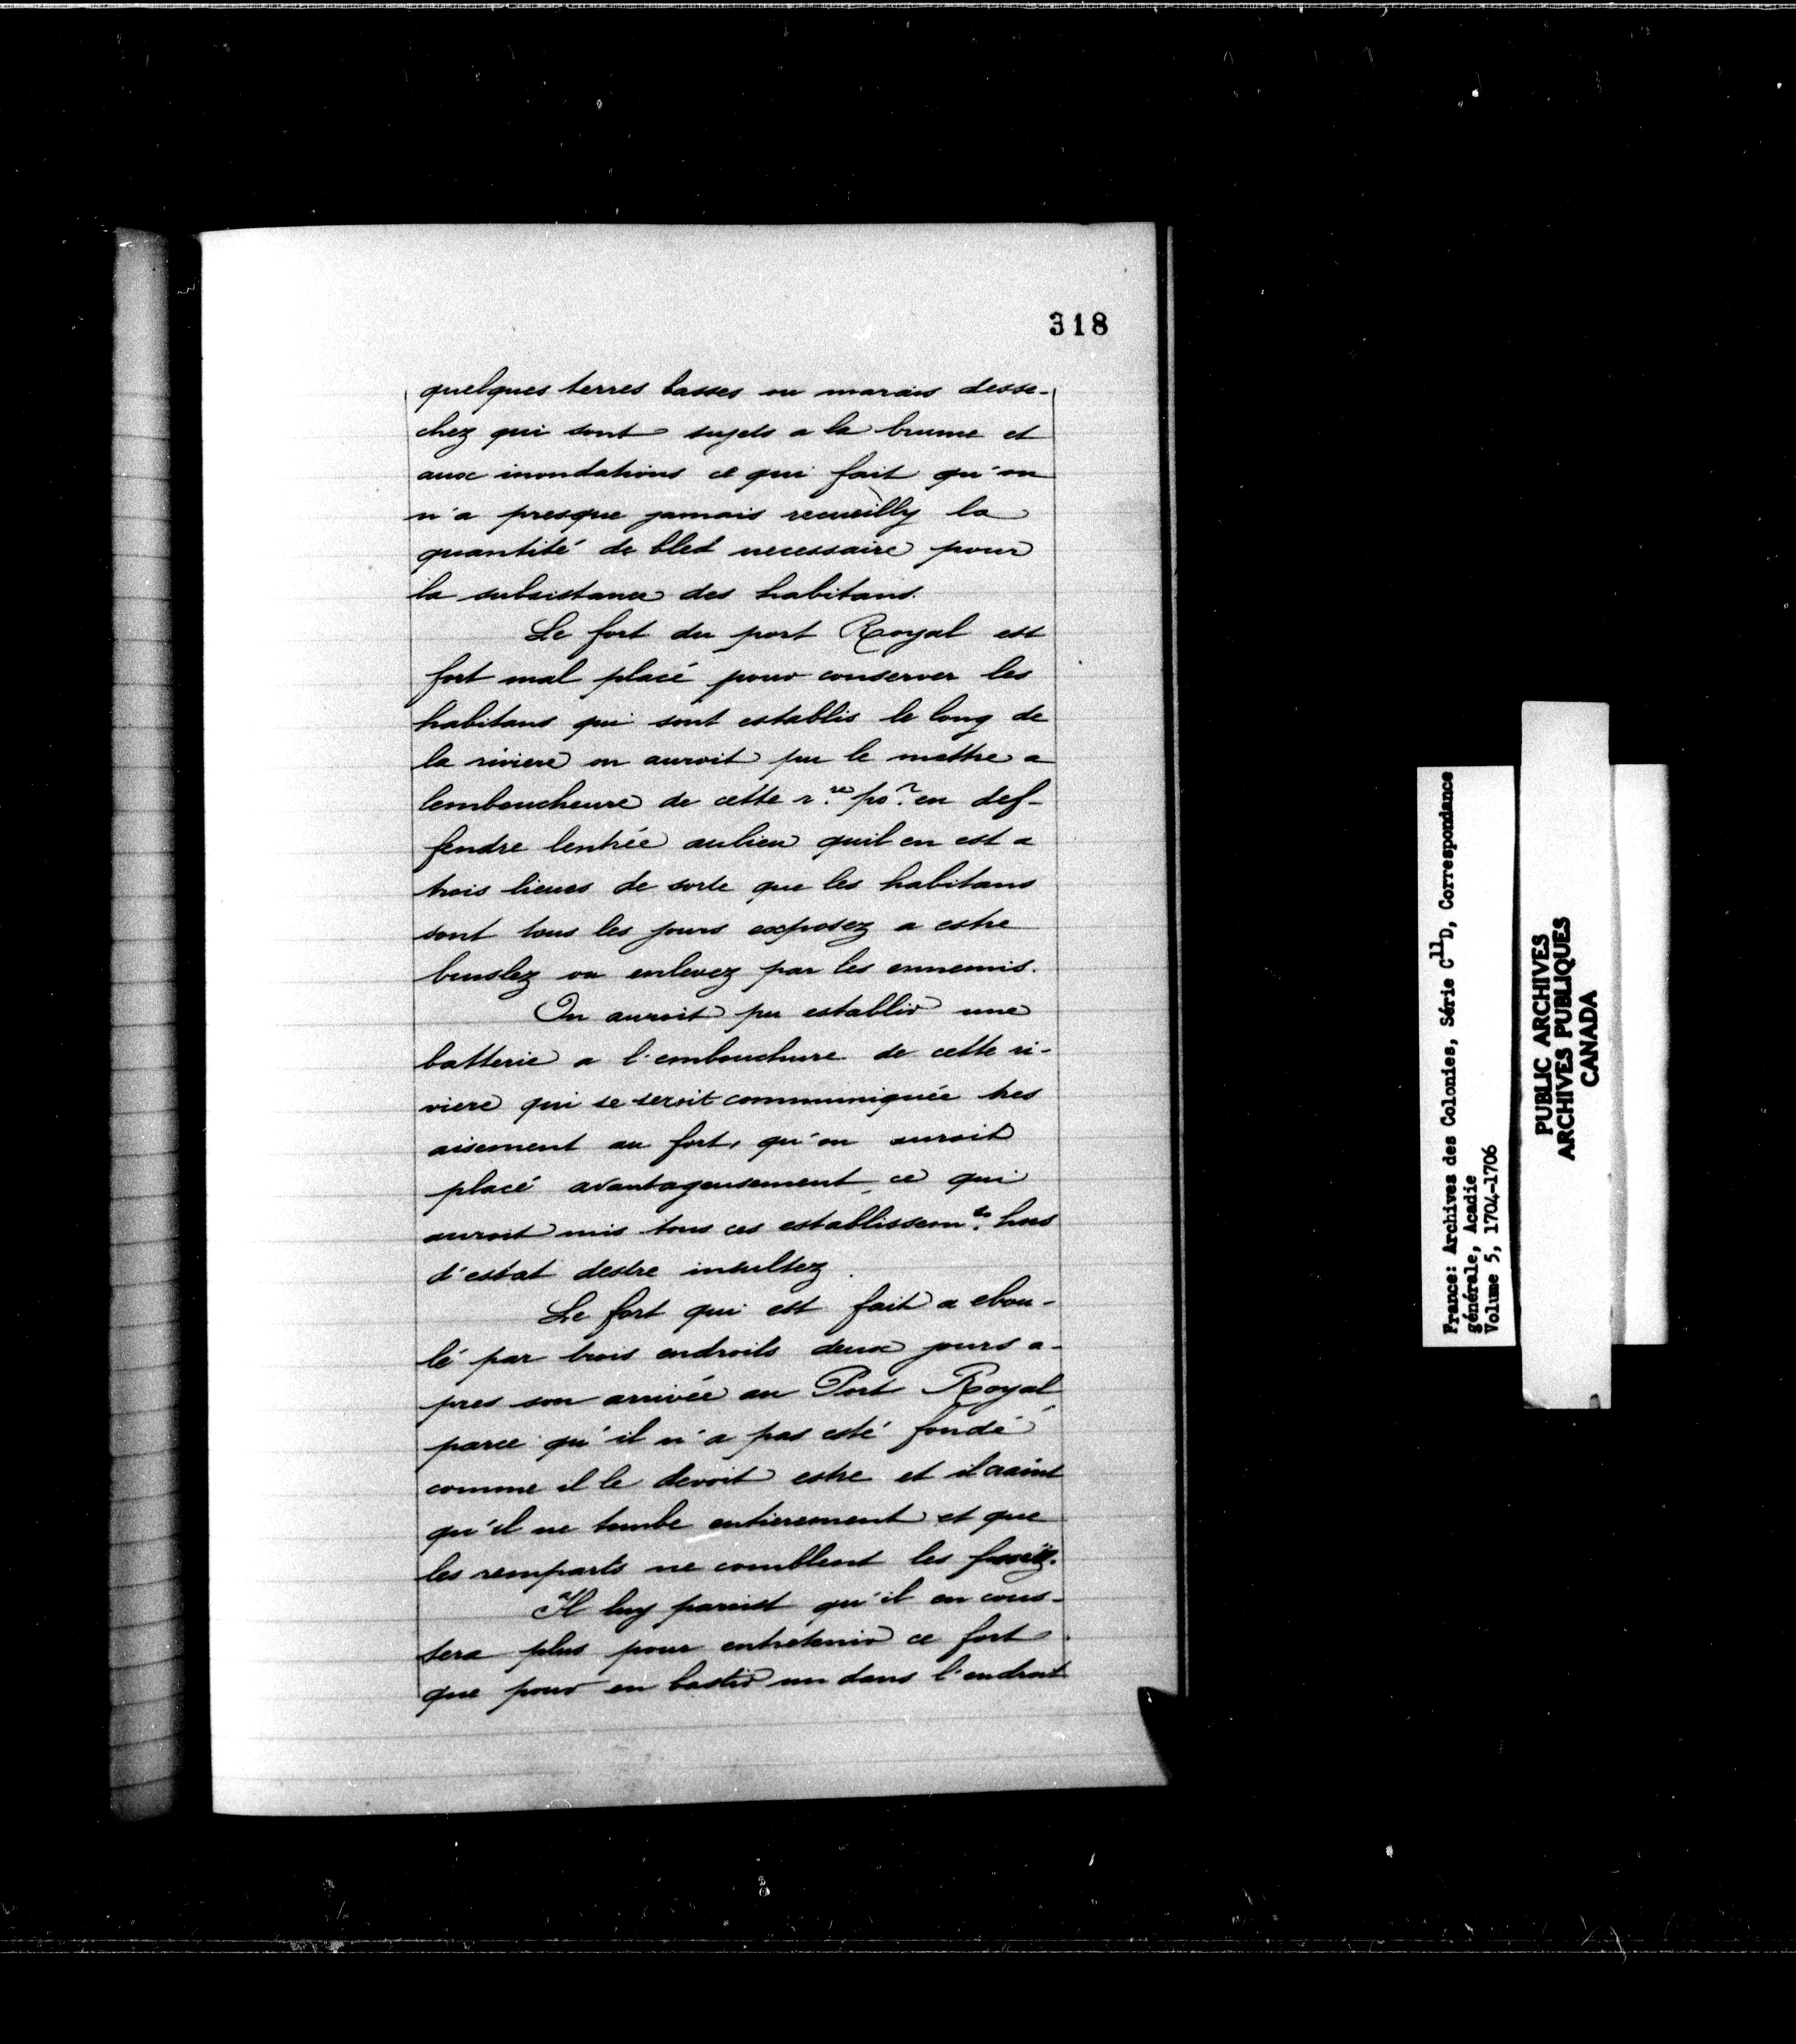 318
quelques terres basses ou marais desse-
chez qui sont sujets a la brume et
aux inondations ce qui fait qu'on
n'a presque jamais recueilly la
quantité de bled necessaire pour
la subsistance des habitans.
Le fort du port Royal est
fort mal placé pour conserver les
habitans qui sont establis le long de
la riviere on auroit pu le mettre a
lemboucheure de cette r.re po.r en def-
fendre lentrée aulieu quil en est a
trois lieues de sorte que les habitans
sont tous les jours exposez a estre
bruslez ou enlevez par les ennemis.
On auroit pu establir une
batterie a l'embouchure de cette ri-
viere qui se seroit communiquée tres
aisement au fort, qu'on auroit
placé avantageusement ce qui
auroit mis tous ces establissem.ts hors
d'estat destre insultez.
Le fort qui est fait a ebou-
lé par trois endroits deux jours a-
pres son arrivée au Port Royal
parce qu'il n'a pas esté fondé
comme il le devoit estre et il craint
qu'il ne tombe entierement et que
les remparts ne comblent les fossez.
Il luy paroist qu'il en cous-
tera plus pour entretenir ce fort
que pour en bastir un dans l'endroit
France: Archives des Colonies, Série C11D, Correspondance
générale, Acadie
Volume 5, 1704-1706
PUBLIC ARCHIVES
ARCHIVES PUBLIQUES
CANADA